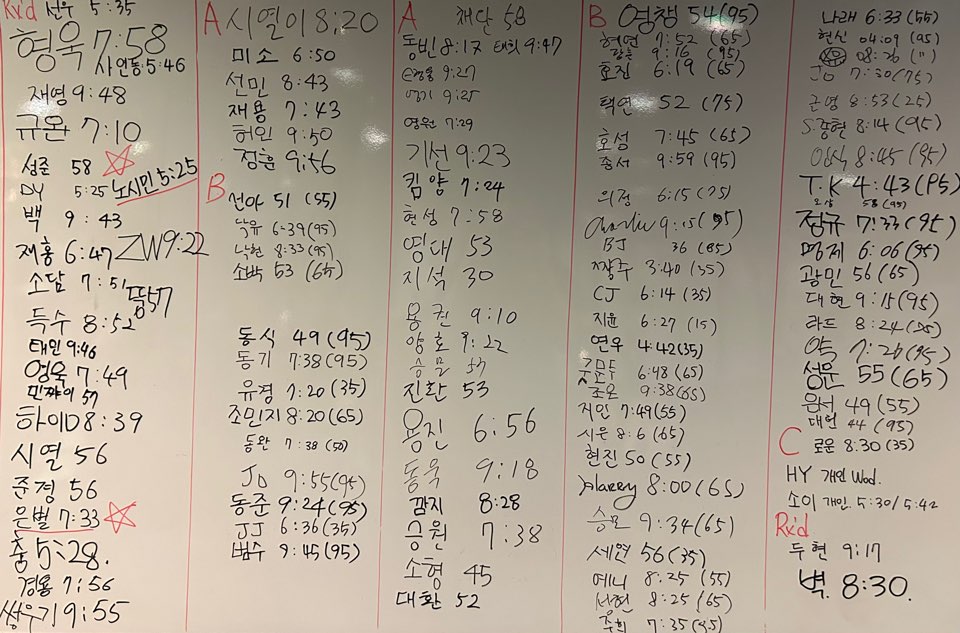 Rx'd 선우 5:35
형욱 7:58
사인동:5:46
재영 9:48
규완 7:10
성준 58
DY 5:25 노시민 5:25
백 9:43
재홍 6:47 ZW 9:22
소담 7:51
뚐57
득수 8:52
태인 9:46
영욱 7:49
민짜이 57
하이D 8:39
시열 56
준경 56
은별 7:33
춤 5:28.
경용 7:56
쌩우기 9:55
A 시열이 8:20
미소 6:50
선민 8:43
재용 7:43
허인 9:50
정훈 9:56
B
선아 51 (55)
낙유 6:39 (95)
낙현 8:33 (95)
소박 53 (65)
동식 49 (95)
동기 7:38 (95)
유경 7:20 (35)
조민지 8:20 (65)
동완 7:38 (50)
JD 9:55 (95)
동준 9:24 (95)
JJ 6:36 (35)
범수 9:45 (95)
A 채단 58
동빈 8:17 태희 9:47
9:27
9:25
영원 7:29
기선 9:23
킴양 7:24
현성 7:58
영대 53
지석 30
용권 9:10
양호 9:22
승물 57
진환 53
용진 6:56
동욱 9:18
깜지 8:28
승원 7:38
소형 45
대환 52
B 영챙 54 (95)
허연 7:52 (65)
9:16 (95)
효진 6:19 (65)
택연 52 (75)
호성 7:45 (65)
종서 9:59 (95)
의정 6:15 (75)
Charlie 9:15 (95)
BJ 36 (85)
짱주 3:40 (35)
CJ 6:14 (35)
지윤 6:27 (15)
연우 4:42 (35)
6:48 (65)
조은 9:38 (65)
지인 7:49 (55)
시은 8:6 (65)
현진 50 (55)
Harry 8:00 (65)
승모 9:34 (65)
세연 56 (35)
예니 8:25 (55)
서현 8:25 (65)
주희 7:35 (45)
나래 6:33 (55)
현신 04:09 (95)
08:26 (")
JD 7:30 (75)
근영 8:53 (25)
S.종현 8:14 (95)
임식 8:45 (95)
T.K 4:43 (95)
58 (95)
장규 7:33 (95)
명제 6:06 (95)
광민 56 (65)
대현 9:15 (95)
라드 8:24
7:20 (95)
성윤 55 (65)
은서 49 (55)
대원 44 (95)
C 로운 8:30 (35)
HY 개인 Wod.
소이 개인. 5:30/5:42
Rx'd
두현 9:17
벽. 8:30.